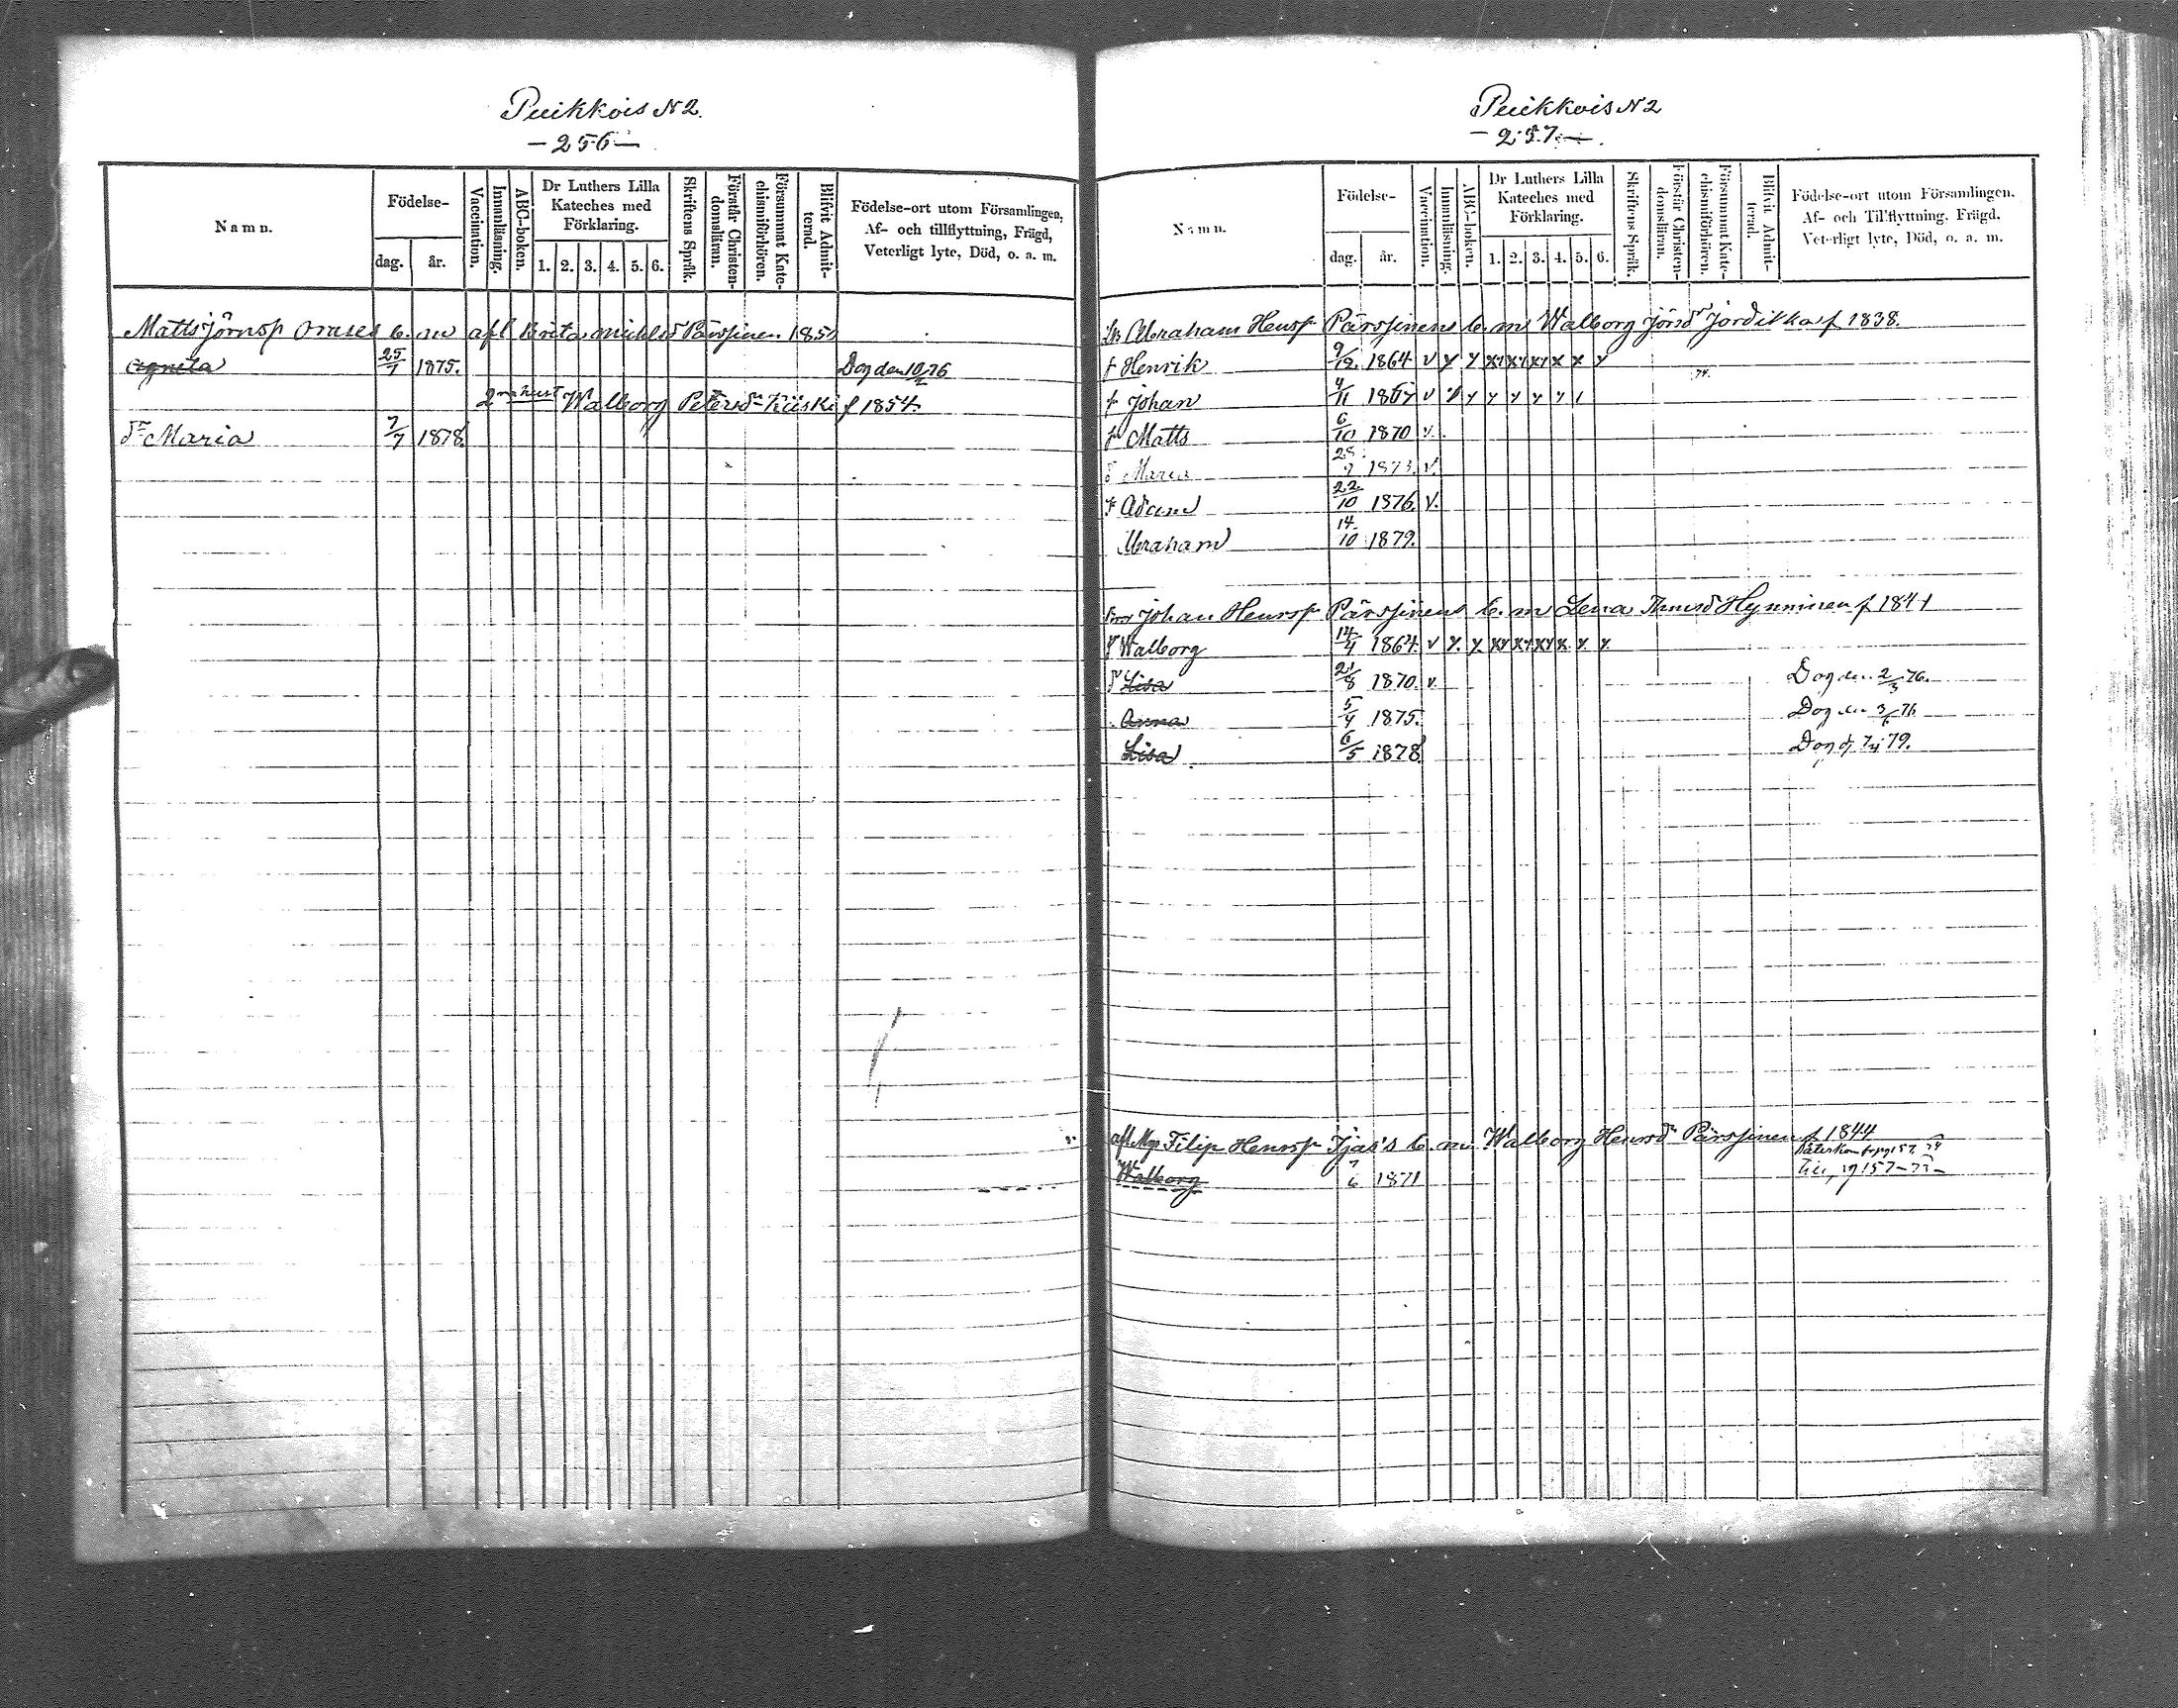 Puikkois N 2.
— 256 —
Namn.
Födelse-
dag.
år.
Vaccination.
Innanläsning.
ABC-boken.
Dr Luthers Lilla
Kateches med
Förklaring.
1. 2. 3. 4. 5. 6.
Skriftens Språk.
Förstår Christen-
domsläran.
Försummat Kate-
chismiförhören.
Blifvit Admit-
terad.
Födelse-ort utom Församlingen,
Af- och tillflyttning, Frägd,
Veterligt lyte, Död, o. a. m.
Matts Jörnsp b. m afl Brita Michlsd Pärssinen 185
Agneta 25/1 1875. Dog den 10 76
2 hust Walborg Petersdr Kiiski f 1854.
dr Maria 7/7 1878.
Puikkois N 2
— 257 —.
Namn.
Födelse-
dag.
år.
Vaccination.
Innanläsning.
ABC-boken.
Dr Luthers Lilla
Kateches med
Förklaring.
1. 2. 3. 4. 5. 6.
Skriftens Språk.
Förstår Christen-
domsläran.
Försummat Kate-
chismiförhören.
Blifvit Admit-
terad.
Födelse-ort utom Församlingen.
Af- och Tillflyttning, Frägd.
Veterligt lyte, Död, o. a. m.
Abraham Hensp Pärssinens b. m Walborg Jörsdr f 1838.
Henrik 9/12 1864 v y y xy xy xy x x y
Johan 4/11 1867 v y y y y y y
Matts 6/10 1870 v.
Maria 1873. v
Adam 22/10 1876. v.
Abraham 14/10 1879.
Johan Henrsp Pärssinens b. m Lena Thmsd Hynninen f 1841
Walborg 14/4 1864. v y. y xy xy xy x. y. y.
Lisa 21/8 1870. v. Dog den 2/3 76.
Anna 5/4 1875. Dog den 76
Lisa 6/5 1878 Dog d 79.
afl. Filip Henrsp b. m. Walborg Henrsd Pärssinen f 1844
Walborg 1871